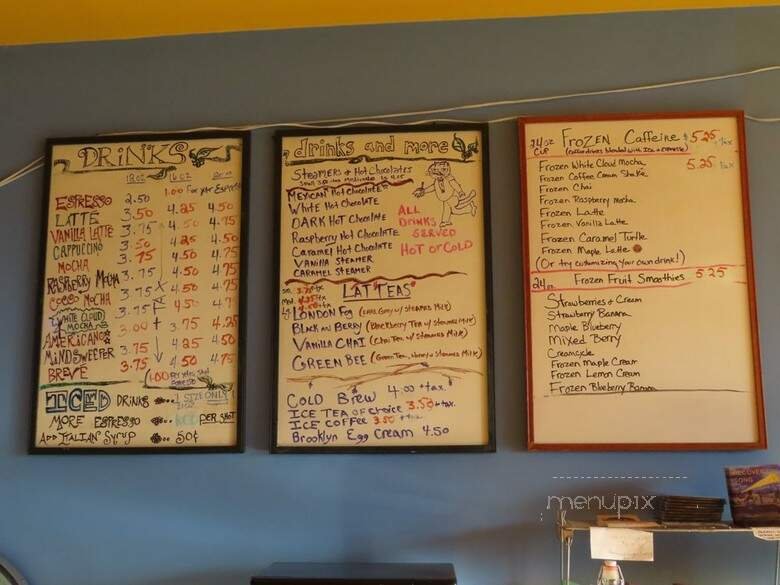 DRINKS
12oz 16oz
1.00 For
ESPRESSO 2.50
LATTE 3.50 4.25 4.50
VANILLA LATTE 3.75 4.50 4.75
CAPPUCCINO 3.50 4.25 4.50
MOCHA 3.75 4.50 4.75
RASPBERRY MOCHA 3.75 4.50 4.75
COCCO MOCHA 3.75 4.50
WHITE CLOUD MOCHA 3.75 4.50
AMERICANO 3.00 3.75 4.25
MINDSWEEPER 3.75 4.50
BREVE 3.75 4.50 4.75
1.00
ICED DRINKS 1 SIZE ONLY
MORE ESPRESSO PER SHOT
ADD ITALIAN SYRUP 50¢
drinks and more
STEAMERS & HOT CHOCOLATES
MEXICAN HOT CHOCOLATE
WHITE HOT CHOCOLATE
DARK HOT CHOCOLATE
RASPBERRY HOT CHOCOLATE
CARAMEL HOT CHOCOLATE
VANILLA STEAMER
CARAMEL STEAMER
ALL DRINKS SERVED HOT or COLD
LAT"TEAS"
LONDON FOG (EARL GREY w/ STEAMED MILK)
BLACK AND BERRY (BLACKBERRY TEA w/ STEAMED MILK)
VANILLA CHAI (CHAI TEA w/ STEAMED MILK)
GREEN BEE (GREEN TEA, HONEY w/ STEAMED MILK)
COLD BREW 4.00 +tax.
ICE TEA OF CHOICE 3.50 +tax.
ICE COFFEE 3.50 +tax
Brooklyn Egg Cream 4.50
24oz CUP FROZEN Caffeine $5.25 +tax
(Coffee drinks blended with Ice + espresso)
Frozen White Cloud Mocha 5.25 tax
Frozen Coffee Cream Shake
Frozen Chai
Frozen Raspberry Mocha
Frozen Latte
Frozen Vanilla Latte
Frozen Caramel Turtle
Frozen Maple Latte
(Or try customizing your own drink!)
24oz. Frozen Fruit Smoothies 5.25
Strawberries & Cream
Strawberry Banana
Maple Blueberry
Mixed Berry
Creamsicle
Frozen Maple Cream
Frozen Lemon Cream
Frozen Blueberry Banana
menupix